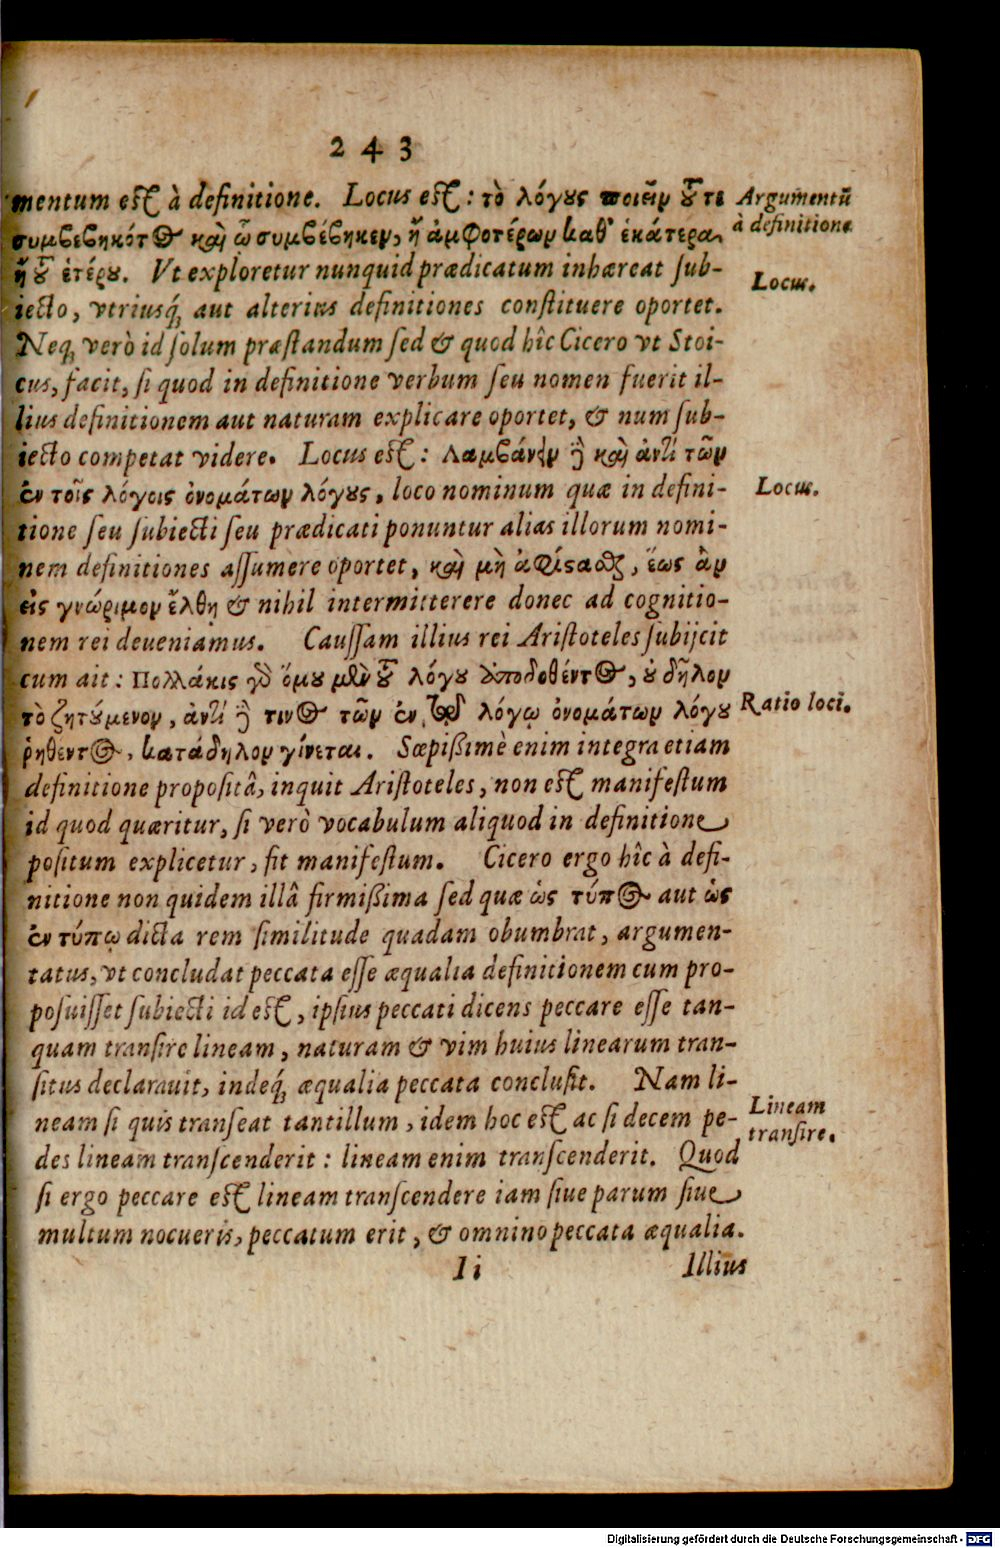 243
mentum est à definitione. Locus est: τὸ λόγους ποιεῖν τοῦ τε
συμβεβηκότος καὶ ᾧ συμβέβηκεν, ἢ ἀμφοτέρων καθ' ἑκάτερα,
ἢ τοῦ ἑτέρου. Vt exploretur nunquid prædicatum inhæreat sub-
iecto, vtriusq́; aut alterius definitiones constituere oportet.
Neq; verò id solum præstandum sed & quod hîc Cicero vt Stoi-
cus, facit, si quod in definitione verbum seu nomen fuerit il-
lius definitionem aut naturam explicare oportet, & num sub-
iecto competat videre. Locus est: Λαμβάνειν δὲ καὶ ἀντὶ τῶν
ἐν τοῖς λόγοις ὀνομάτων λόγους, loco nominum quæ in defini-
tione seu subiecti seu prædicati ponuntur alias illorum nomi-
nem definitiones assumere oportet, καὶ μὴ ἀφίστασθαι, ἕως ἂν
εἰς γνώριμον ἔλθη & nihil intermitterere donec ad cognitio-
nem rei deueniamus. Caussam illius rei Aristoteles subijcit
cum ait: Πολλάκις γὰρ ὅμου μὲν τοῦ λόγου ἀποδοθέντος, οὐ δῆλον
τὸ ζητούμενον, ἀντὶ δὲ τινος τῶν ἐν τῷ λόγῳ ὀνομάτων λόγου
ῥηθέντος, κατάδηλον γίνεται. Sæpißimè enim integra etiam
definitione propositâ, inquit Aristoteles, non est manifestum
id quod quæritur, si verò vocabulum aliquod in definitione
positum explicetur, fit manifestum. Cicero ergo hîc à defi-
nitione non quidem illâ firmißima sed quæ ὡς τύπος aut ὡς
ἐν τύπῳ dicta rem similitude quadam obumbrat, argumen-
tatus, vt concludat peccata esse æqualia definitionem cum pro-
posuisset subiecti id est, ipsius peccati dicens peccare esse tan-
quam transire lineam, naturam & vim huius linearum tran-
situs declarauit, indeq́; æqualia peccata conclusit. Nam li-
neam si quis transeat tantillum, idem hoc est ac si decem pe-
des lineam transcenderit: lineam enim transcenderit. Quod
si ergo peccare est lineam transcendere iam siue parum siue
multum nocueris, peccatum erit, & omnino peccata æqualia.
Ii Illius
Argumentũ
à definitione
Locus.
Locus.
Ratio loci.
Lineam
transire.
Digitalisierung gefördert durch die Deutsche Forschungsgemeinschaft - DFG